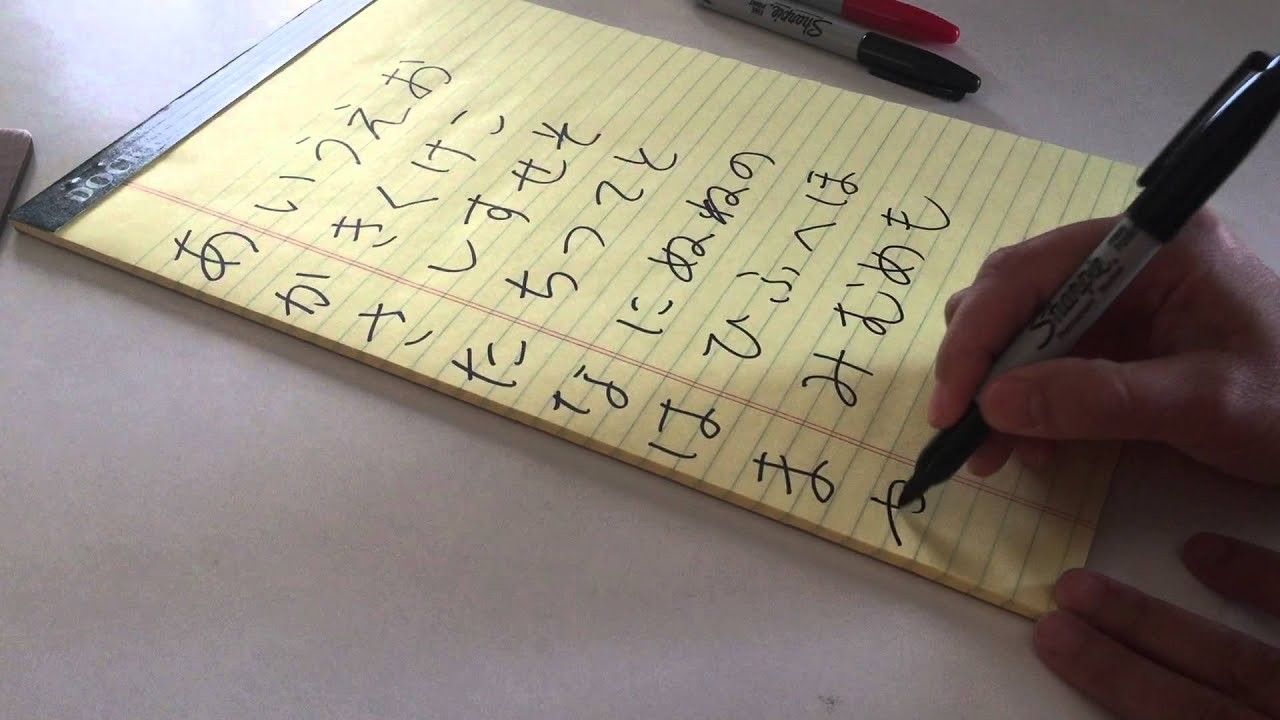 あいうえお
かきくけこ
さしすせそ
たちつてと
なにぬねの
はひふへほ
まみむめも
や
DOCK
Sharpie
Sharpie